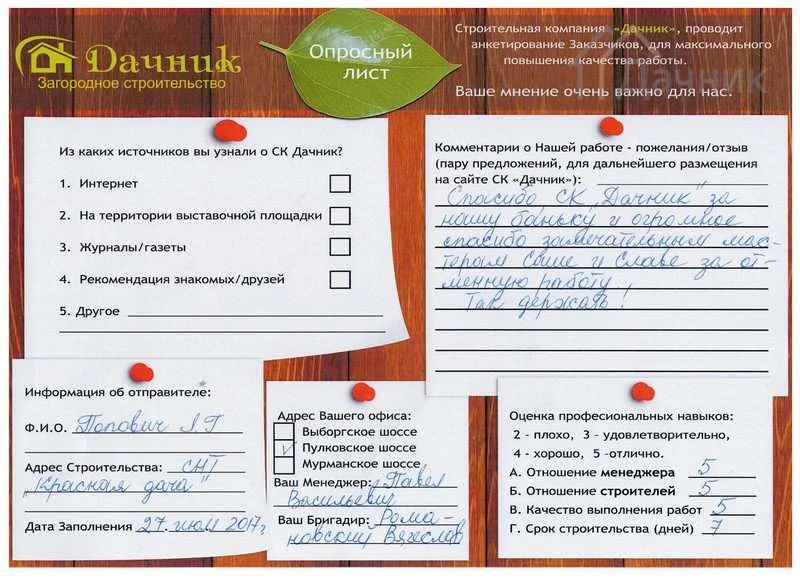 Дачник
Загородное строительство
Опросный
лист
Строительная компания «Дачник», проводит
анкетирование Заказчиков, для максимального
повышения качества работы.
Ваше мнение очень важно для нас.
Дачник
Из каких источников вы узнали о СК Дачник?
1. Интернет
2. На территории выставочной площадки
3. Журналы/газеты
4. Рекомендация знакомых/друзей
5. Другое
Комментарии о Нашей работе - пожелания/отзыв
(пару предложений, для дальнейшего размещения
на сайте СК «Дачник»):
Спасибо СК "Дачник" за
нашу баньку и огромное
спасибо замечательным мас-
терам Саше и Славе за от-
менную работу
Так держать!
Информация об отправителе:
Ф.И.О. Попович Л.Г
Адрес Строительства: СНТ
"Красная дача"
Дата Заполнения 27. июля 2017г
Адрес Вашего офиса:
Выборгское шоссе
Пулковское шоссе
Мурманское шоссе
Ваш Менеджер: Павел
Васильевич
Ваш Бригадир: Рома-
новский Вячеслав
Оценка професиональных навыков:
2 - плохо, 3 - удовлетворительно,
4 - хорошо, 5 -отлично.
А. Отношение менеджера 5
Б. Отношение строителей 5
В. Качество выполнения работ 5
Г. Срок строительства (дней) 7